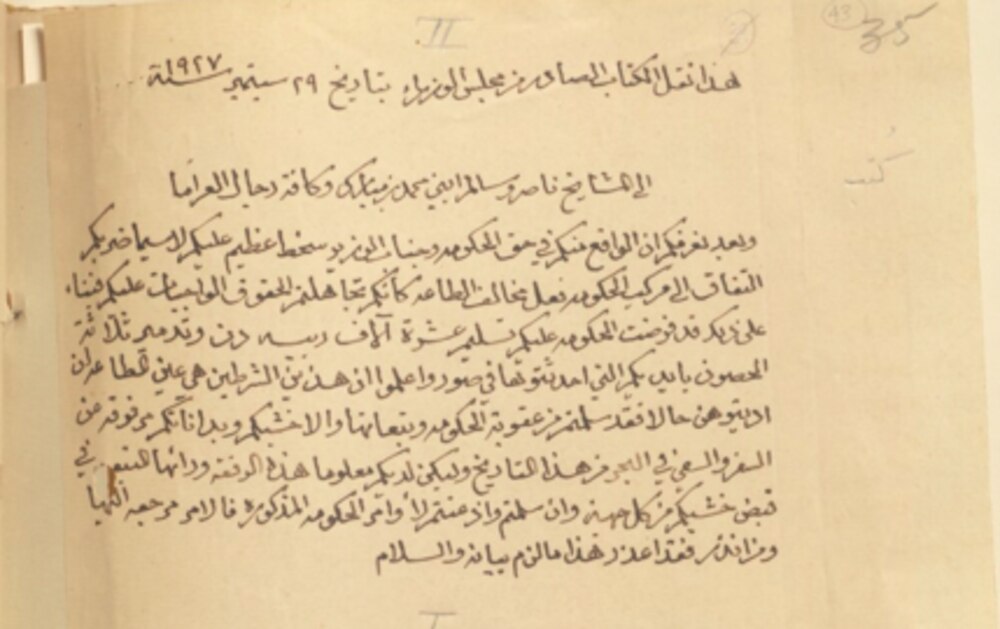 II
43
هذا نقل الكتاب الصادر من مجلس الوزراء بتاريخ ٢٩ سبتمبر سنة ١٩٢٧
الى المشايخ ناصر وسالم ابني محمد بن مبارك وكافة رجال العراما
وبعد نعرفكم ان الواقع منكم في حق الحكومه وجناب الوزير سخط عظيم عليكم لاسيما ضربكم
التفاق الى مركب الحكومه فعل مخالف الطاعه كأنكم تجاهلتم الحقوق الواجبات عليكم فبناء
على ذلك قد فرضت الحكومه عليكم تسليم عشرة آلاف ربيه دين وتدمير ثلاثة
الحصون بايديكم التي احدثتوها في صور واعلموا ان هذين الشرطين هي عين المطاع فان
اديتوهن حالا فقد سلمتم من عقوبة الحكومه وتبعاتها والا خشبكم وبداناتكم موقوفه عن
السفر والسعي في البحر من هذا التاريخ وليكن لديكم معلوما هذا الوقفه ودائما التتبع في
قبض خشبكم من كل جهة وان سلمتم واذعنتم لأوامر الحكومه المذكوره فالامر مرجعه اليها
ومن انذر فقد اعذر هذا ما لزم بيانه والسلام
I